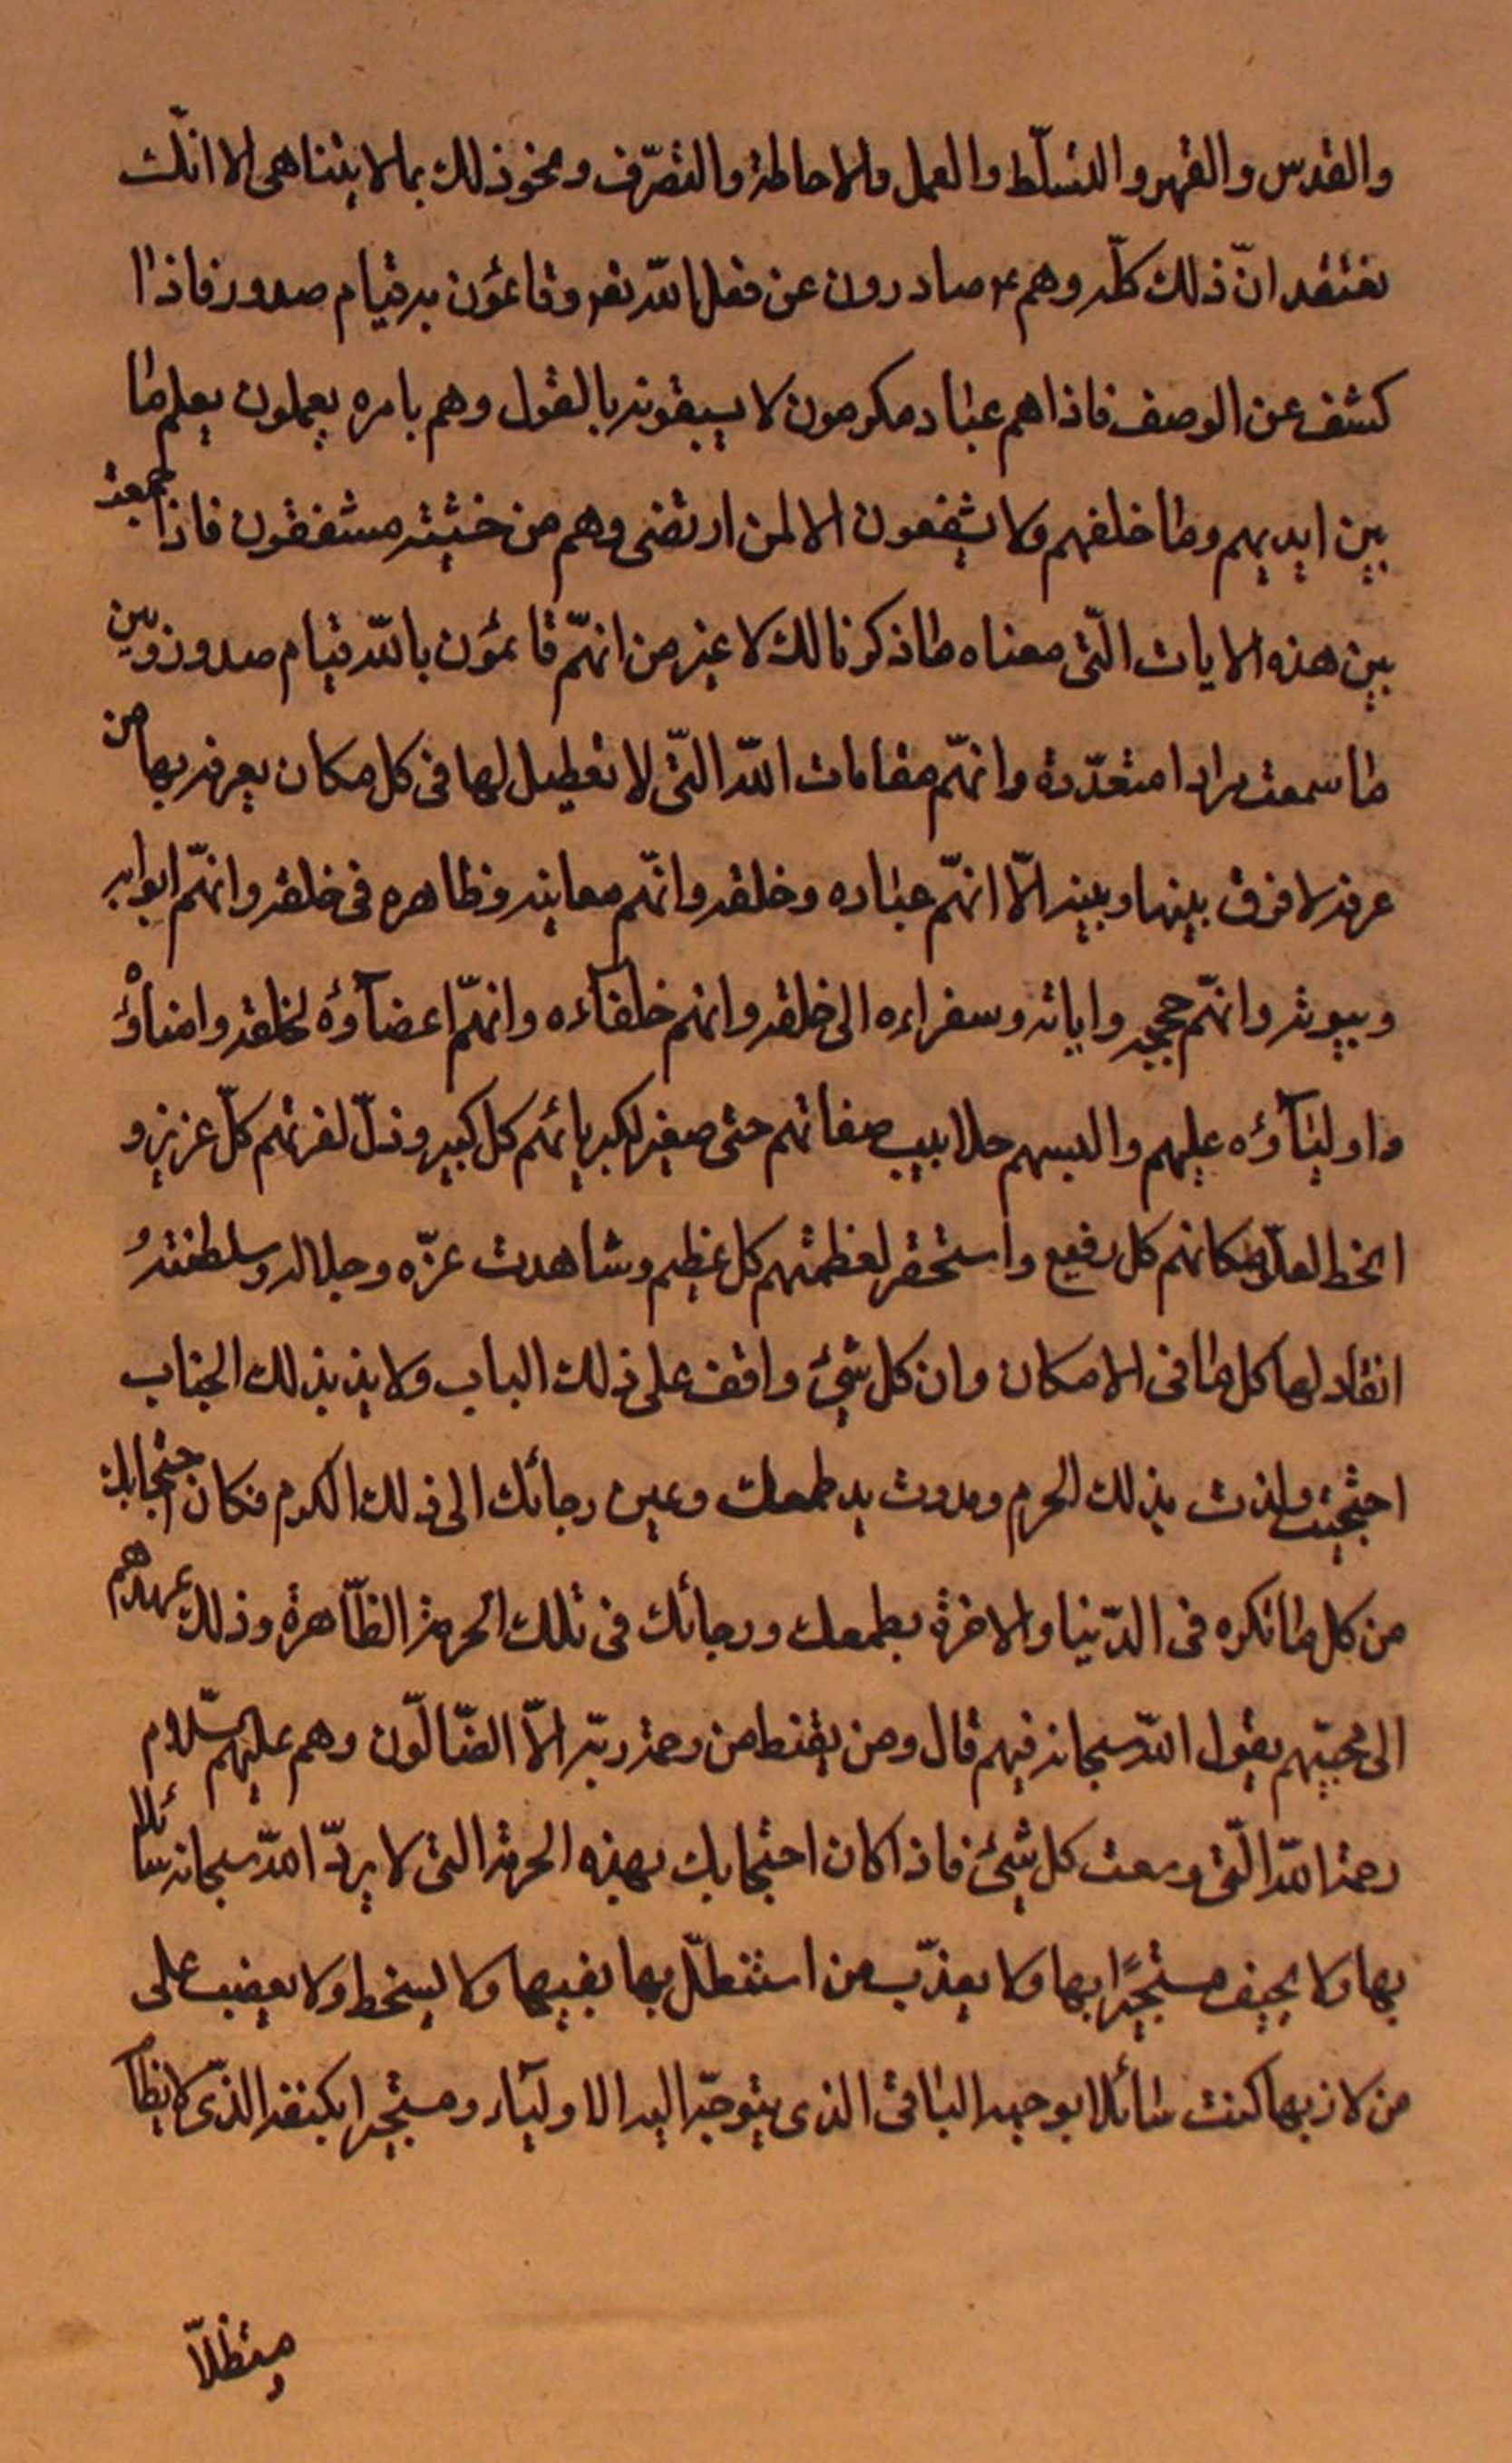 والقدس والقهر والتسلّط والعمل والاحاطة والتصرّف ونحو ذلك بمالا يتناهى الا انّك
تعتقد انّ ذلك كلّه وهم ع صادرون عن فعل الله تعه وقائمون به قيام صدور فاذا
كشف عن الوصف فاذاهم عباد مكرمون لا يسبقونه بالقول وهم بامره يعملون يعلم ما
بين ايديهم وما خلفهم ولا يشفعون الا لمن ارتضى وهم من خشيته مشفقون فاذا جمعت
بين هذه الايات الّتى معناه ما ذكرنا لك لا غير من انهّم قائمون بالله قيام صدور وبين
ما سمعت مرارا متعدّدة وانهّم مقامات الله الّتى لا تعطيل لها فى كل مكان يعرفه بها من
عرفه لا فرق بينها وبينه الّا انهّم عباده وخلقه وانهّم معانيه وظاهره فى خلقه وانهّم ابوابه
وبيوته وانهّم حججه واياته وسفراءه الى خلقه وانهم خلفآءه وانهّم اعضآؤه لخلقه وامناؤه
واوليآؤه عليهم والبسهم جلابيب صفاتهم حتى صغير لكبريائهم كل كبير وذلّ لعزتهم كلّ عزيز و
انحط لعلّو مكانهم كل رفيع واستحقر لعظمتهم كل عظيم وشاهدت عزّه وجلاله وسلطنته
انقاد لها كل ما فى الامكان وان كل شيئ واقف على ذلك الباب ولا يذ بذلك الجناب
احتجبت ولذت بذلك الحرم ومددت يد طمعك وعين رجائك الى ذلك الكرم فكان احتجابك
من كل ما تكره فى الدّنيا والاخرة بطمعك ورجائك فى تلك الحرمة الظّاهرة وذلك عهدهم
الى محبّيهم يقول الله سبحانه فيهم قال ومن يقنط من رحمة ربّه الّا الضّالّون وهم عليهم السّلام
رحمة الله الّتى وسعت كل شيئ فاذا كان احتجابك بهذه الحرمة التى لا يردّ الله سبحانه سائلا
بها ولا يحيف مستجيرًا بها ولا يعذّب من استظلّ بها بفيها ولا يسخط ولا يغضب على
من لاذ بها كنت سائلا بوجهه الباقى الذى يتوجّه اليه الاوليآء ومستجيرا بكنفه الذّى لا
مستظلّا